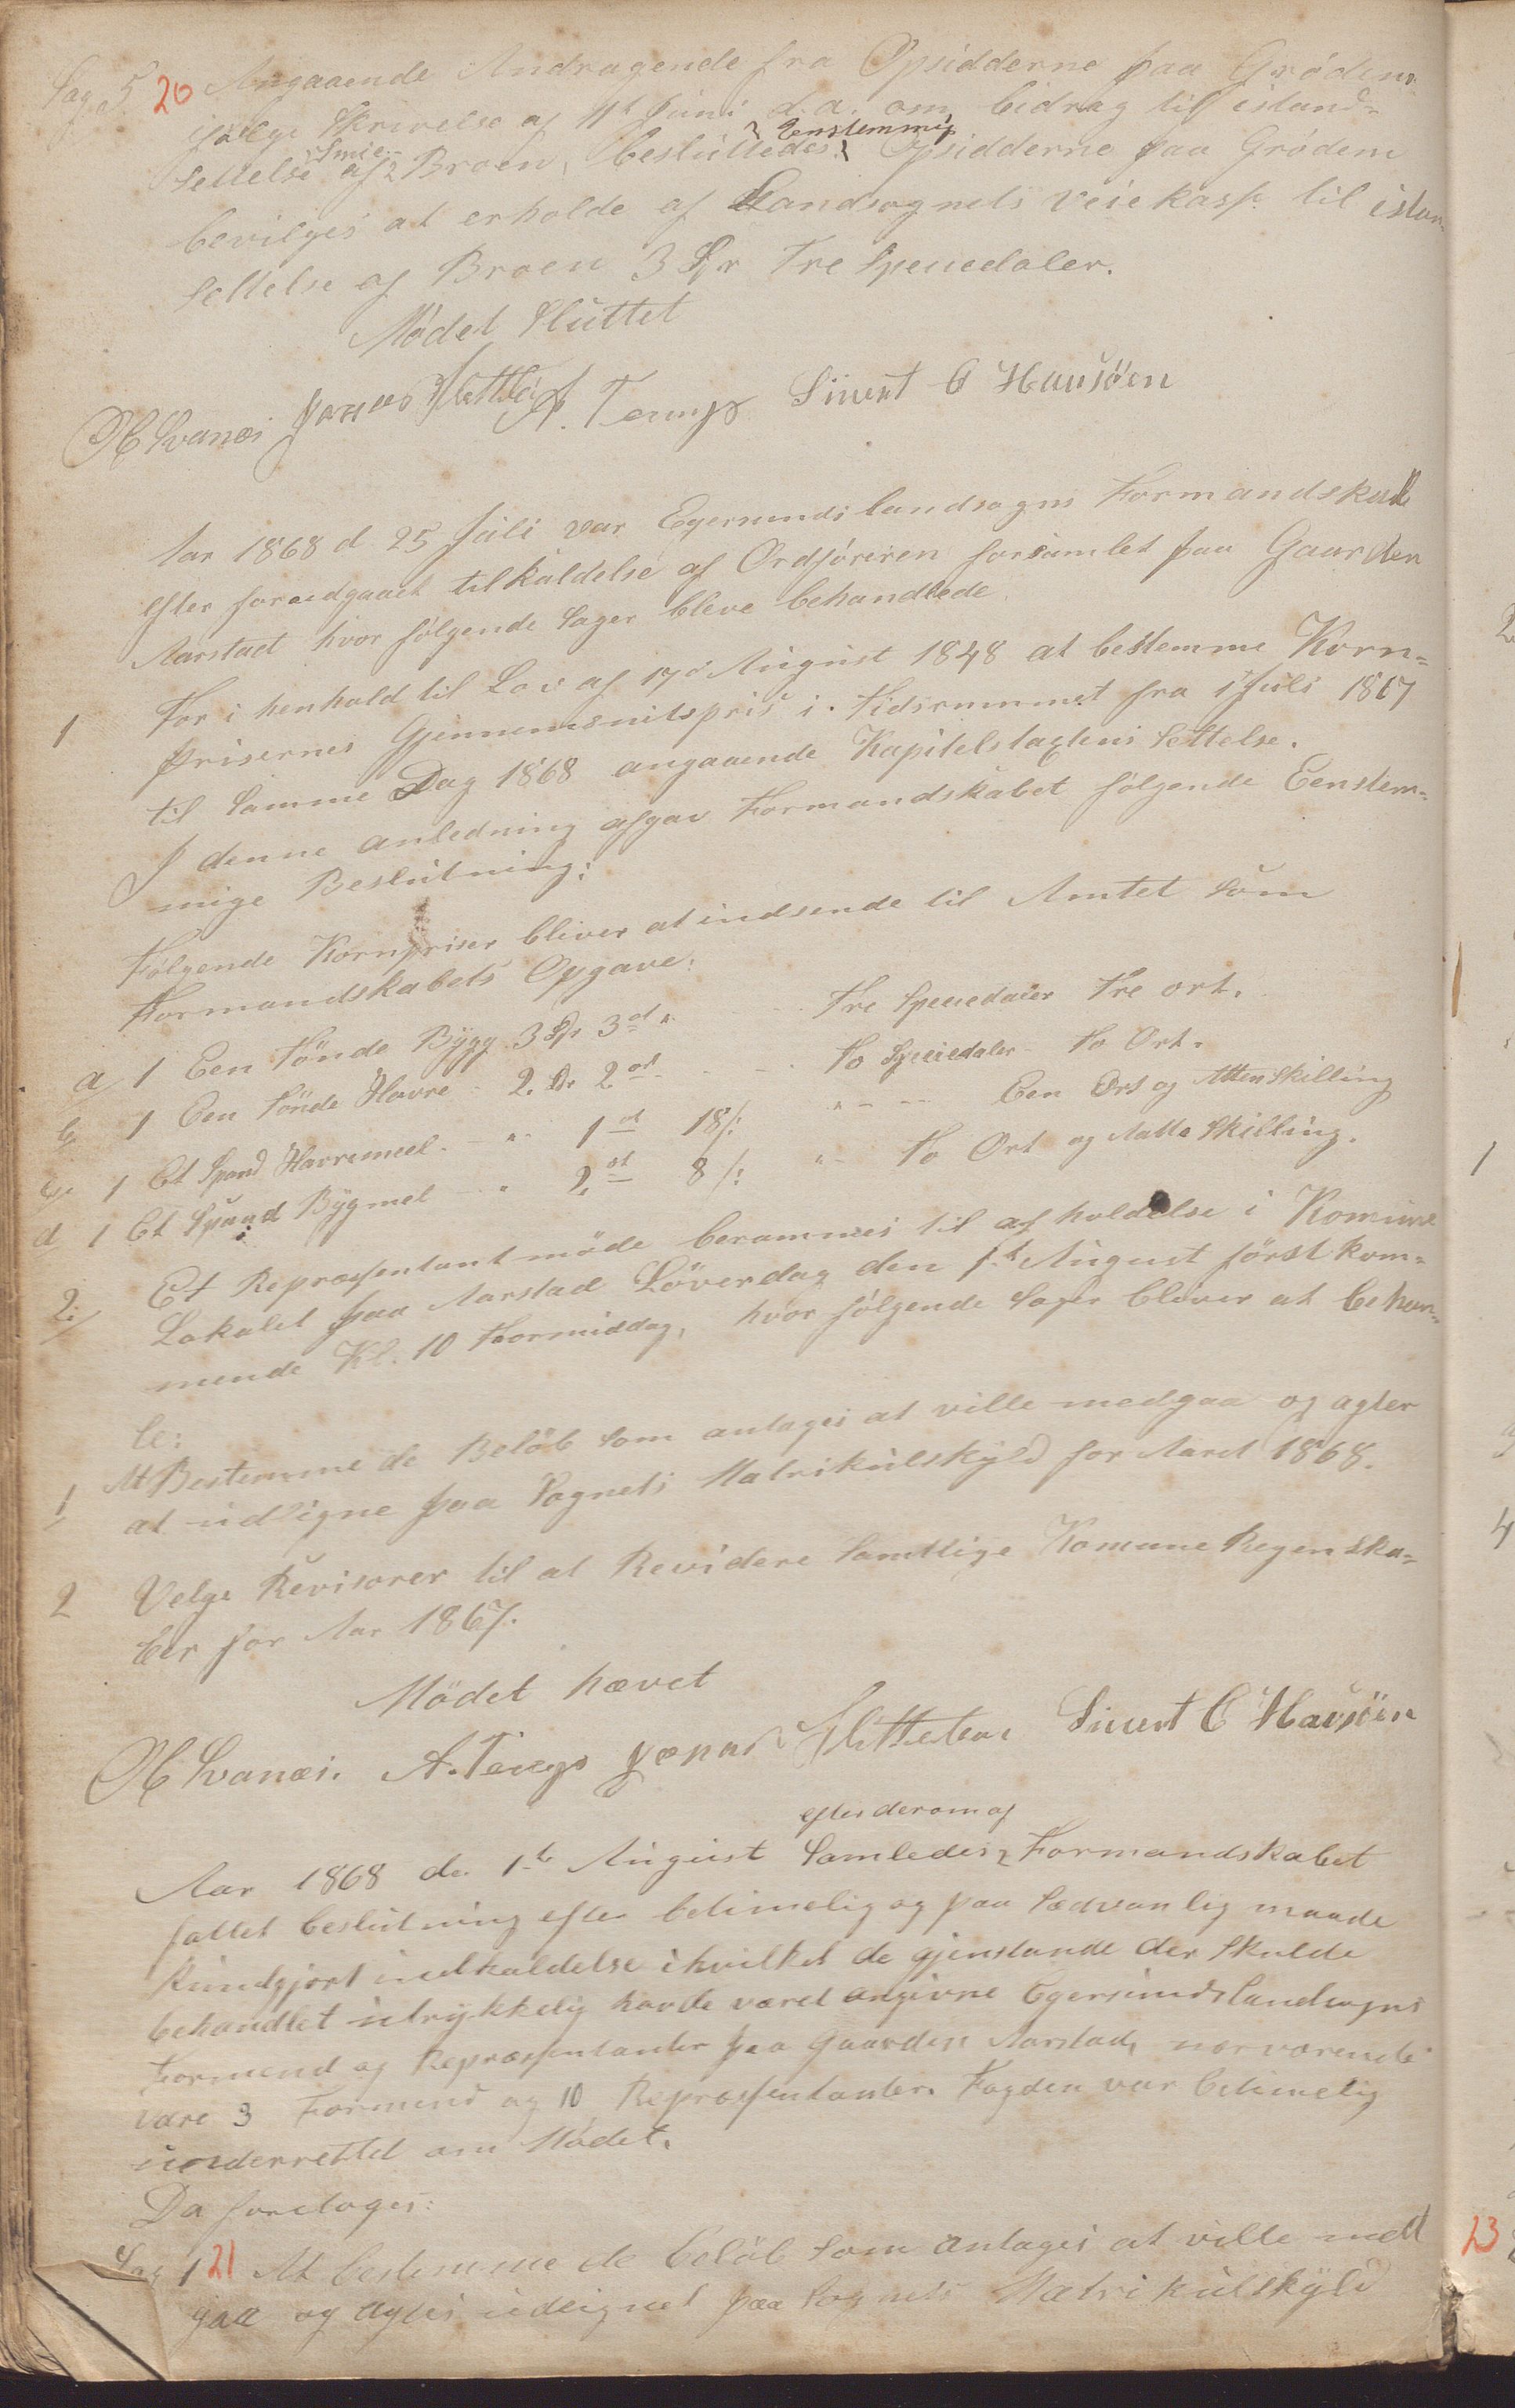 Sag 5 20 Angaaende Andragende fra Opsidderne paa Grödem
ifølge Skrivelse af 4de Juni d.a. om bidrag til istand-
settelse af Smie Broen, besluttedes Eenstemmig Opsidderne paa Grödem
bevilges at erholde af Landsognets Veiekasse til istan-
settelse af Broen 3 Spr Tre Speciedaler.
Mödet Sluttet
OH Svanæs Jonas Slettebø A. Tengs Sivert C Hausöen
Aar 1868 d 25 Juli var Egersunds landsogns Formandskab
efter foraadgaaet tilkaldelse af Ordföreren forsamlet paa Gaarden
Aarstad hvor følgende Sager bleve behandlede.
1 For i henhold til Lov af 17de August 1848 at bestemme Korn-
prisernes Gjennemsnitspris i Tidsrummet fra 1 Juli 1867
til Samme Dag 1868 angaaende Kapitelstaxtens Settelse.
I denne anledning afgav Formandskabet følgende Eenstem-
mige Beslutning:
Følgende Kornpriser bliver at indsende til Amtet som
Formandskabets Opgave:
a 1 Een Tönde Bygg 3 Sp 3 ort Tre Speciedaler Tre ort.
b 1 Een Tönde Havre 2 Sp 2 ort To Speciedaler To Ort.
c 1 Et Spand Havremeel 1 ort 18 s: Een Ort og Atten skilling
d 1 Et Spand Bygmel 2 ort 8 s: To Ort og Aatte Skilling.
2 Et Repræsentantmöde berammes til afholdelse i Komune
Lokalet paa Aarstad Löverdag den 1te August förstkom-
mende Kl. 10 Formiddag, hvor følgende Sager bliver at behan-
le:
1 At Bestemme de Belöb som antages at ville medgaa og agter
at udligne paa Sognets Matrikulskyld for Aaret 1868.
2 Velge Revisorer til at Revidere Samtlige Komune Regenska-
ber for Aar 1867.
Mödet hævet
OH Svanæs. A. Tengs Jonas Slettebø Sivert C Hausöen
Aar 1868 de 1te August Samledes efter derom af Formandskabet
fattet beslutning efter betimelig og paa Sædvanlig maade
kundgjort indkaldelse i hvilket de gjenstande der skulde
behandlet utrykkelig havde været angivne Egersunds landsogns
Formend og Repræsentanter paa Gaarden Aarstad, nærværende
vare 3 Formend og 10 Repræsentanter. Fogden var betimelig
underrettet om Mödet.
Da foretoges:
Sag 1 21 At bestemme de belöb som antages at ville med
gaa og agtes udlignet paa Sognets Matrikulskyld
23